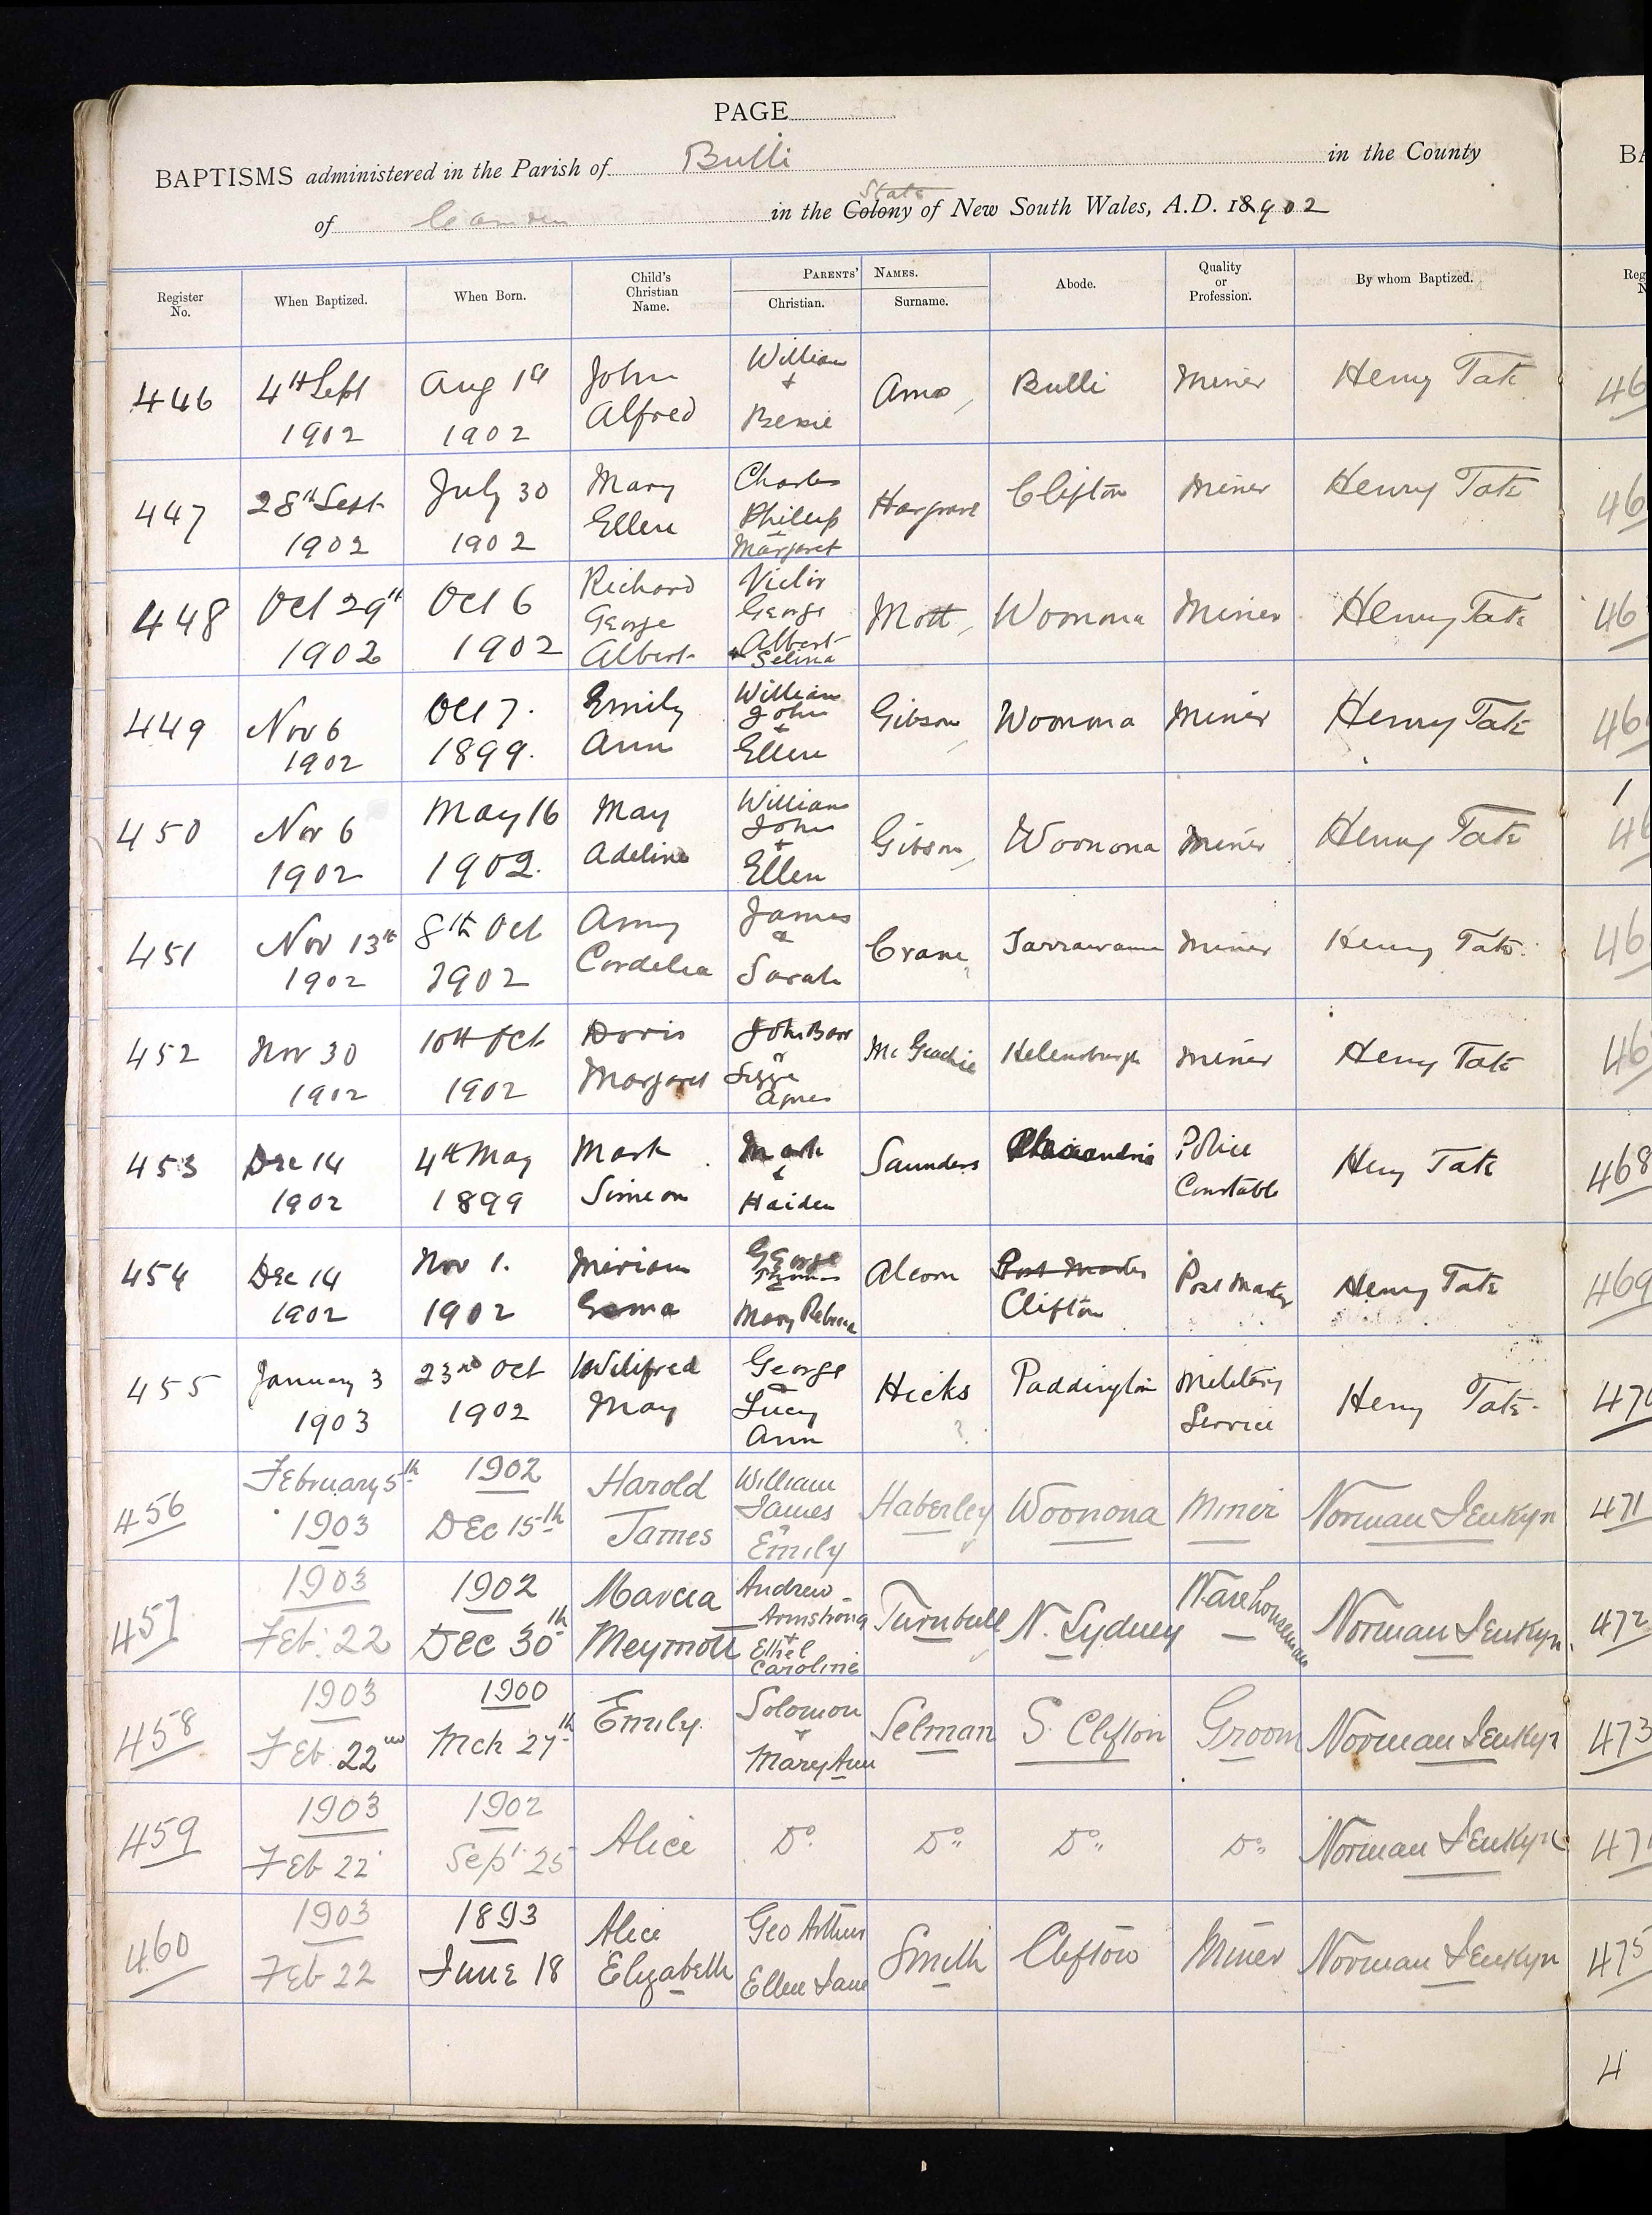 PAGE
BAPTISMS administered in the Parish of Bulli in the County
State
of Camden in the Colony of New South Wales, A.D. 18902
Register No. When Baptized. When Born. Child's Christian Name. PARENTS' NAMES. Christian. Surname. Abode. Quality or Profession. By whom Baptized.
446 4th Sept 1902 Aug 1902 John Alfred William + Bessie Bulli Miner Henry Tate
447 28th Sept 1902 July 30 1902 Mary Ellen Charles Phillip + Margaret Hargrave Clifton Miner Henry Tate
448 Oct 29th 1902 Oct 6 1902 Richard George Albert Victor George Albert + Selina Mott Woonona Miner Henry Tate
449 Nov 6 1902 Oct 7. 1899. Emily Ann William John + Ellen Gibson Woonona Miner Henry Tate
450 Nov 6 1902 May 16 1902. May Adeline William John + Ellen Gibson Woonona Miner Henry Tate
451 Nov 13th 1902 8th Oct 1902 Amy Cordelia James & Sarah Crane Tarrawanna Miner Henry Tate.
452 Nov 30 1902 10th Oct 1902 Doris Margaret John Barr & Lizzie Agnes McGeachie Helensburgh Miner Henry Tate
453 Dec 14 1902 4th May 1899 Mark Simeon Mark & Haiden Saunders Alexandria Police Constable Heny Tate
454 Dec 14 1902 Nov 1. 1902 Miriam George Thomas & Mary Rebecca Alcorn Post Master Clifton Post Master Henry Tate
455 January 3 1903 23rd Oct 1902 Wilifred May George & Lucy Ann Hicks Paddington Military Service Heny Tate.
456 February 5th 1903 1902 Dec 15th Harold James William James & Emily Haberley Woonona Miner Norman Jenkyn
457 1903 Feb. 22 1902 Dec 30th Marcia Meymott Andrew Armstrong + Ethel Caroline Turnbull N. Sydney Warehouseman Norman Jenkyn.
458 1903 Feb. 22nd 1900 Mch 27th Emily. Solomon + Mary Ann Selman S. Clifton Groom Norman Jenkyn
459 1903 Feb 22 1902 Sept 25 Alice Do. Do. Do. Do. Norman Jenkyn
460 1903 Feb 22 1893 June 18 Alice Elizabeth Geo Arthur Ellen Jane Smith Clifton Miner Norman Jenkyn
468
469
471
472
473
475